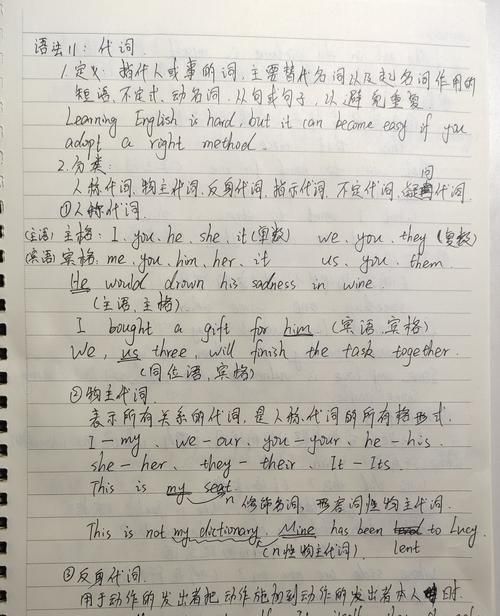 语法11: 代词.
1.定义: 指代人或事的词, 主要替代名词以及起名词作用的
短语、不定式、动名词、从句或句子, 以避免重复.
Learning English is hard, but it can become easy if you
adopt a right method.
2.分类:
人称代词. 物主代词. 反身代词. 指示代词. 不定代词. 疑问代词.
①人称代词.
(主语) 主格: I、you、he、she、it(单数) we、you、they (复数)
(宾语) 宾格: me、you、him、her、it us、you、them.
He would drown his sadness in wine.
(主语, 主格)
I bought a gift for him (宾语, 宾格)
We, us three, will finish the task together.
(同位语, 宾格)
②物主代词.
表示所有关系的代词, 是人称代词的所有格形式.
I-my、we-our、you-your、he-his.
she-her、they-their、It-Its.
This is my seat
n 修饰名词, 形容词性物主代词.
This is not my dictionary. Mine has been to Lucy.
(n性物主代词) lent
③反身代词.
用于动作的发出者把动作施加到动作的发出者本人时.